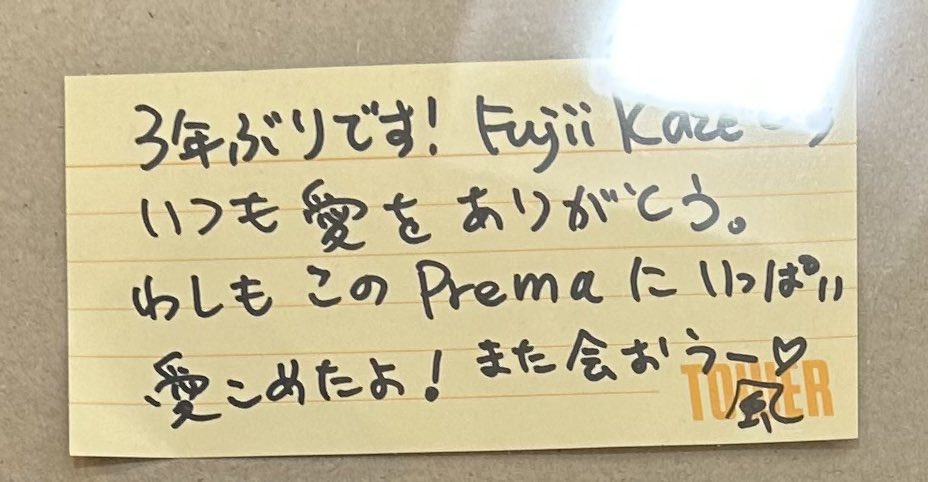 3年ぶりです! Fujii Kaze
いつも愛をありがとう。
わしもこのPremaにいっぱい
愛こめたよ! また会おうー♡
TOWER
風